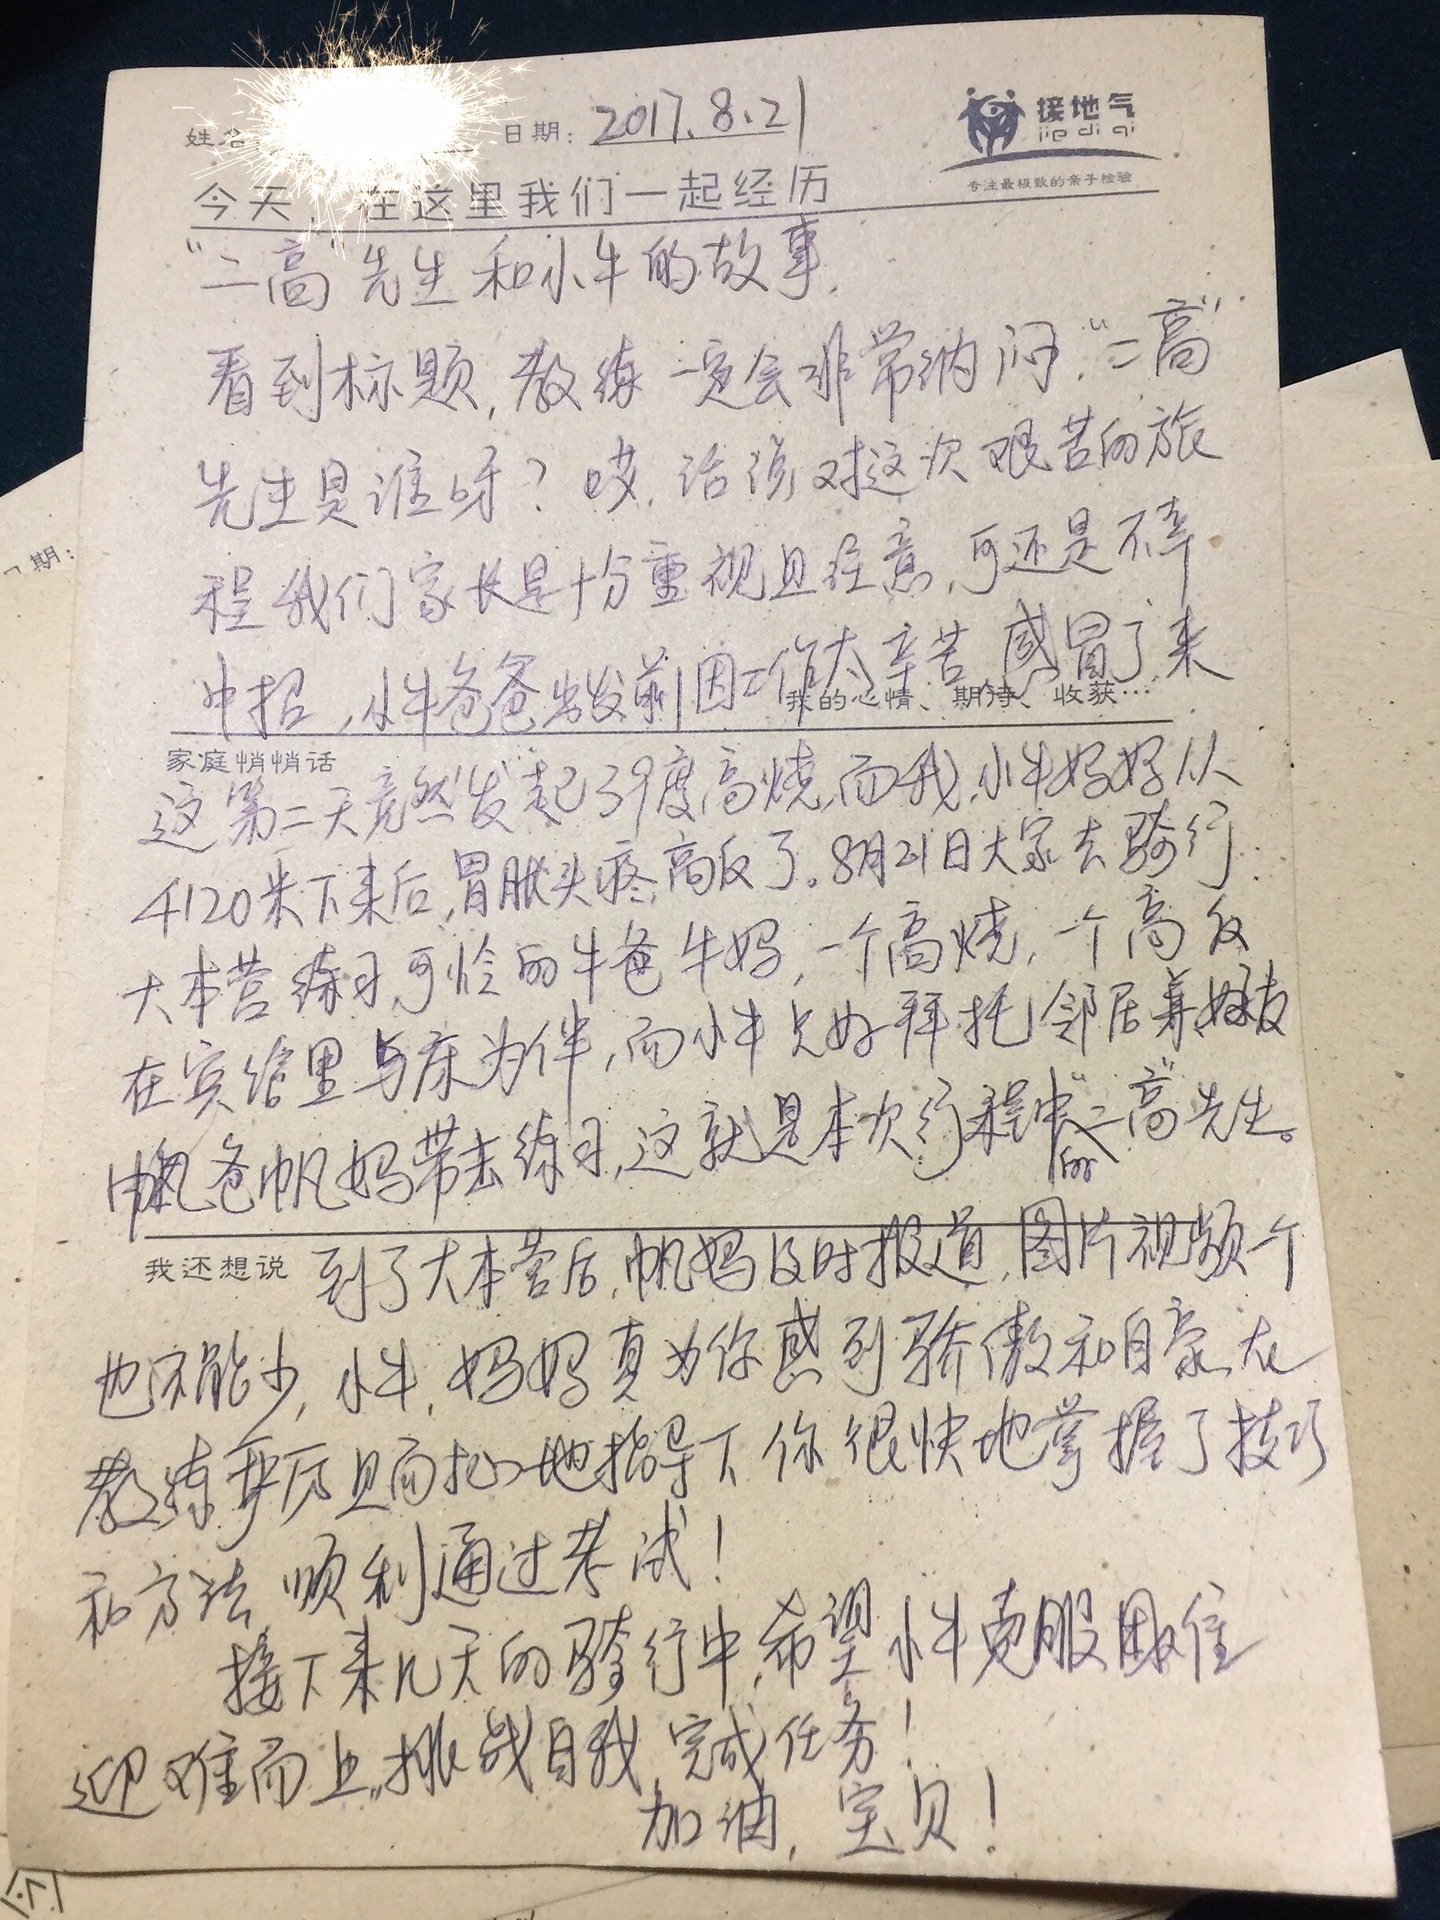 姓名: 日期: 2017.8.21
接地气
jie di qi
专注最极致的亲子检验
今天, 在这里我们一起经历
“二高”先生和小牛的故事.
看到标题, 教练一定会非常纳闷, “二高”
先生是谁呀? 哎, 话说对这次艰苦的旅
程我们家长是十分重视且注意, 可还是不幸
中招, 小牛爸爸出发前因工作太辛苦, 感冒了, 来
我的心情、期待、收获…
家庭悄悄话
这第二天竟然发起了39度高烧, 而我, 小牛妈妈从
4120米下来后, 胃胀头疼, 高反了。8月21日大家去骑行
大本营练习, 可怜的牛爸牛妈, 一个高烧, 一个高反
在宾馆里与床为伴, 而小牛只好拜托邻居兼好友
帆爸帆妈带去练习, 这就是本次行程中的“二高”先生。
我还想说 到了大本营后, 帆妈及时报道, 图片视频一个
也不能少, 小牛, 妈妈真为你感到骄傲和自豪, 在
教练严厉且而扎心地指导下你很快地掌握了技巧
和方法, 顺利通过考试!
接下来几天的骑行中, 希望小牛克服困难
迎难而上, 挑战自我, 完成任务!
加油, 宝贝!
期: